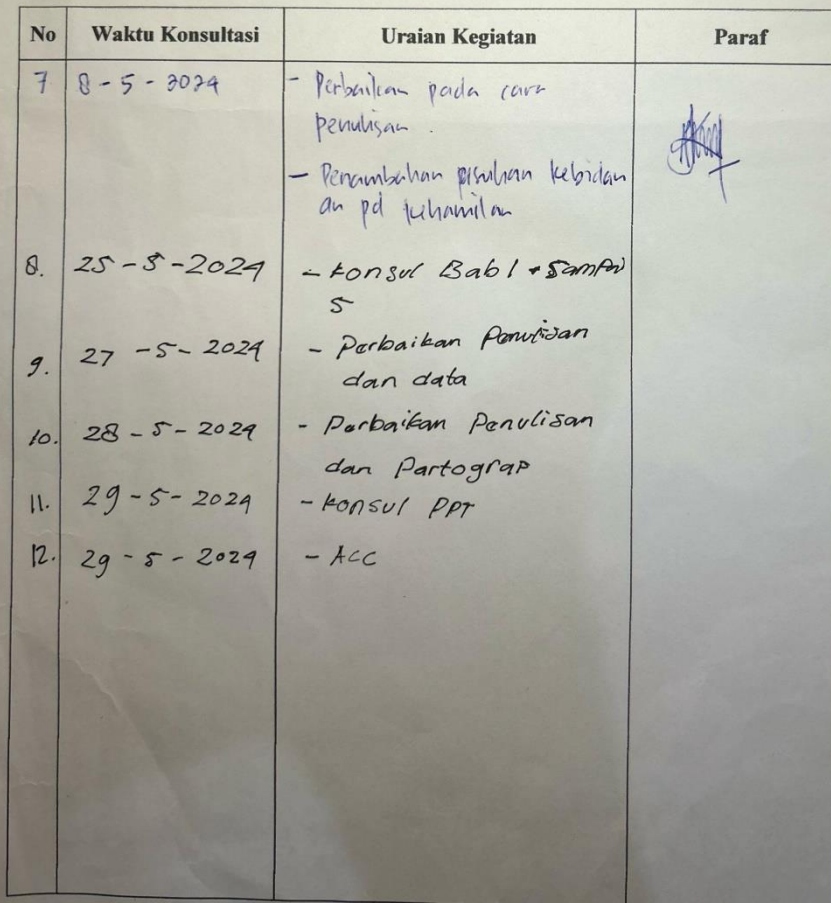 No Waktu Konsultasi Uraian Kegiatan Paraf
7 8-5-2024 - Perbaikan pada cara
penulisan.
- Penambahan asuhan kebidan
an pd kehamilan
8. 25-5-2024 - Konsul Bab 1 sampai
5
9. 27-5-2024 - Perbaikan Penulisan
dan data
10. 28-5-2024 - Perbaikan Penulisan
dan Partograp
11. 29-5-2024 - Konsul PPT
12. 29-5-2024 - ACC